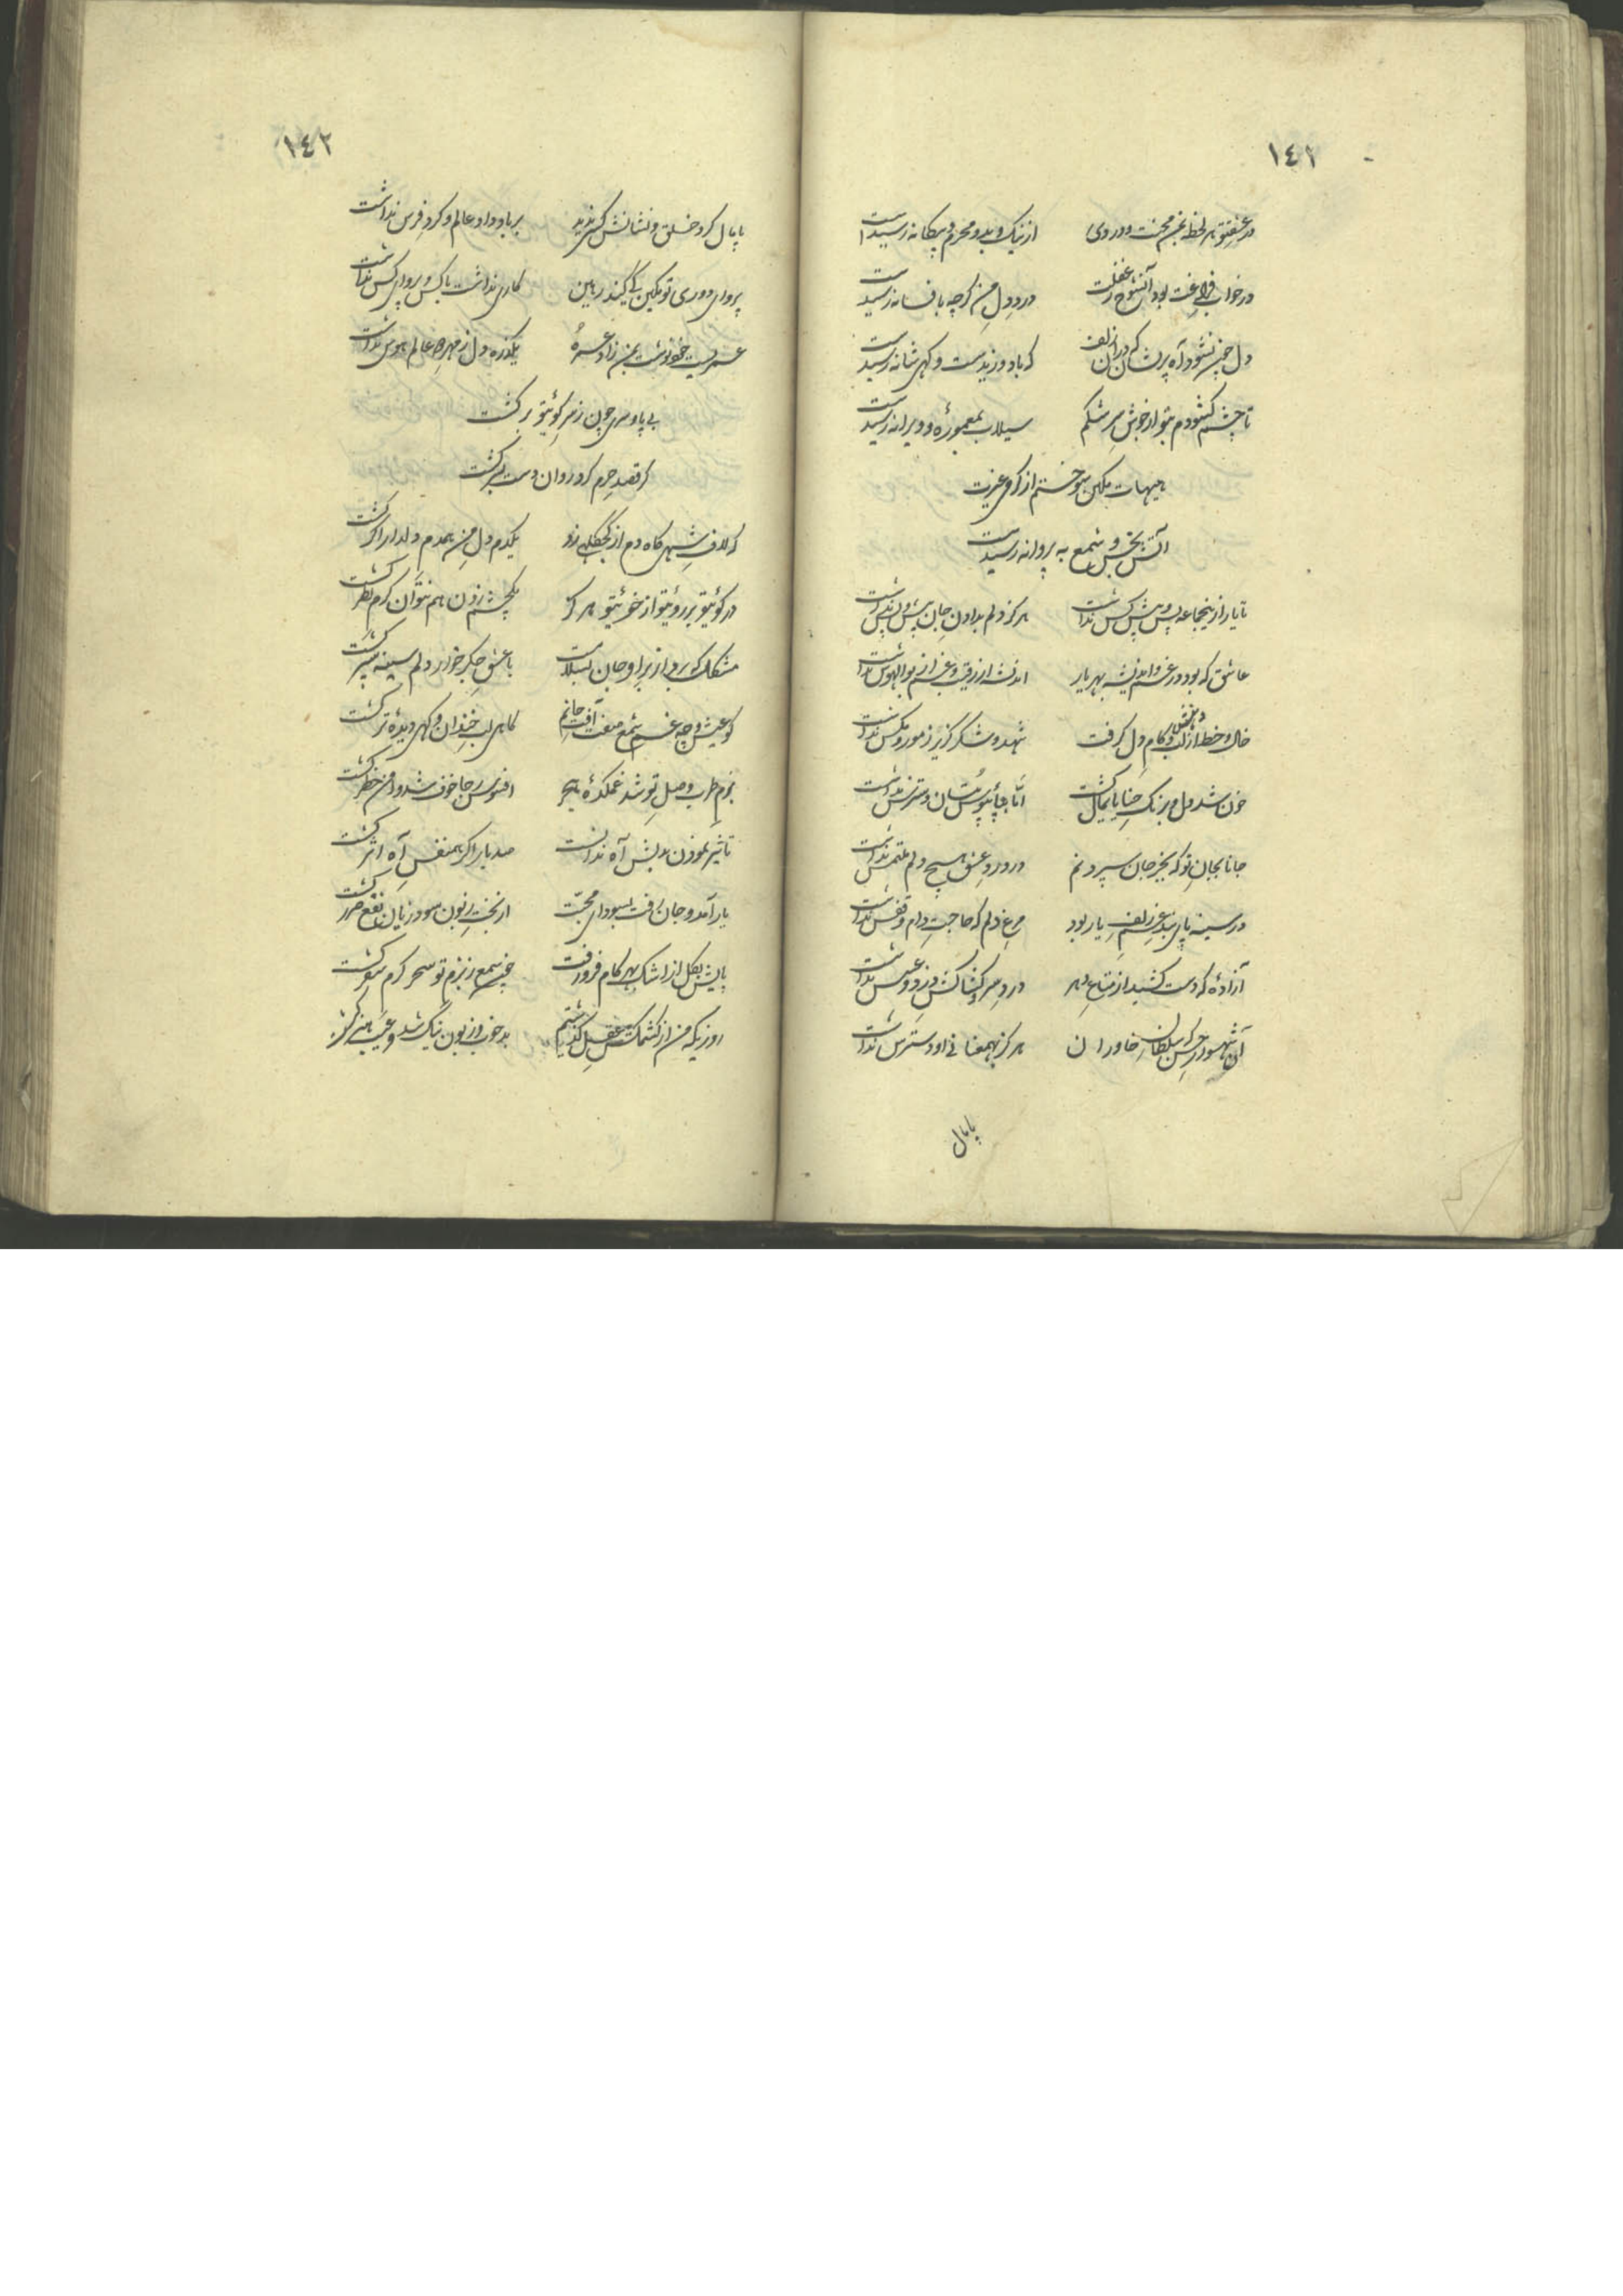 ١٤٢
در عشق تو هر لحظه بمن محنت و دردی از نیک و بد و محرم و بیگانه رسیدست
در خواب فراغت بود آن شوخ ز غفلت درد دل من گرچه بافسانه رسیدست
دل جمع نشود آه پریشان که در آن زلف که باد وزیدست و گهی شانه رسیدست
تا چشم گشودم بتو از جوش سرشکم سیلاب بمعموره و ویرانه رسیدست
هیهات تمکین سوختم از گرمی غیرت
آتش بخس و شمع به پروانه رسیدست
تا یار از پیش و پس کس نداشت هرگز دلم بدادن جان پیش و پس نداشت
عاشق که بود در غم و اندیشه بهر یار اندیشه از رقیب و غم از بوالهوس نداشت
خال و خط از لب و دهنش کام دل گرفت شهد و شکر گزیر ز مور و مگس نداشت
خون شد دل و برنگ حنا پایمال گشت اما بپایبوس بتان دسترس نداشت
جانا بجان تو که بجز جان سپردنم در درد عشق هیچ دلم ملتمس نداشت
در سینه پای بند غم زلف یار بود مرغ دلم که حاجت دام و قفس نداشت
آزاده که دست کشید از متاع دهر درد سر و کشاکش دزد و عسس نداشت
آن شهسوار حسن که سلطان خاوران هرگز بهمعنانی او دسترس نداشت
پامال
١٤٣
پامال کرد خلق و نشانش کسی ندید بر باد داد عالم و گرد فرس نداشت
پروای دوری تو تمکین کی کند رهین کاری نداشت با کس و پروای کس نداشت
عمریست خو نوشت بمن زاد عمره یکذره دل ز مهر عالم هوس نداشت
بی پا و سری چون ز سر کوی تو برگشت
گر قصد حرم کرد روان دست بسر گشت
که لاف شهی گاه دم از کجکلهی زد یکدم دل من همدم دلدار اگر گشت
در کوی تو بر روی تو از خوی تو هرگز یک چشم زدن هم نتوان گرم نظر گشت
مشکل که برد از بر او جان بسلامت با عشق جگرخوار دلم سینه سپر گشت
کو عیش و چه غم شمع صفت آفت جانم گاهی لب خندان و گهی دیده تر گشت
بزم طرب وصل تو شد غمکده هجر افسوس رجا خوف شد و امن خطر گشت
تاثیر نمودن بدلش آه ندانست صد بار اگر همنفس آه اثر گشت
یار آمد و جان رفت بسودای محبت از بخت زبون سود زیان نفع ضرر گشت
پایش بگل از اشک بهر گام فرو رفت چون شمع ز بزم تو سحر گرم سفر گشت
روزیکه من از کشمکش عقل گذشتم بد خوب و زبون نیک شد و عیب هنر گشت